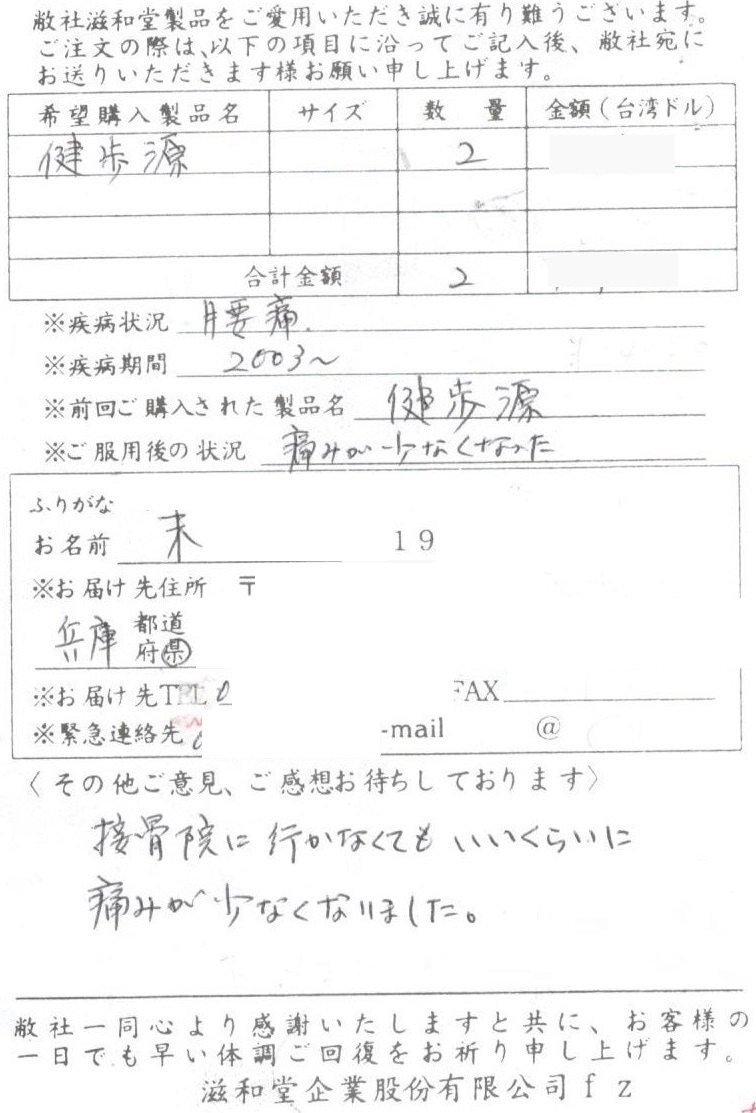 敝社滋和堂製品をご愛用いただき誠に有り難うございます。
ご注文の際は、以下の項目に沿ってご記入後、敝社宛に
お送りいただきます様お願い申し上げます。
希望購入製品名 サイズ 数 量 金額(台湾ドル)
健歩源 2
合計金額 2
※疾病状況 腰痛.
※疾病期間 2003~
※前回ご購入された製品名 健歩源
※ご服用後の状況 痛みが少なくなった
ふりがな
お名前 末 19
※お届け先住所 〒
兵庫 都道府県
※お届け先TEL 0 FAX
※緊急連絡先 -mail @
〈その他ご意見、ご感想お待ちしております〉
接骨院に行かなくてもいいくらいに
痛みが少なくなりました。
敝社一同心より感謝いたしますと共に、お客様の
一日でも早い体調ご回復をお祈り申し上げます。
滋和堂企業股份有限公司fz